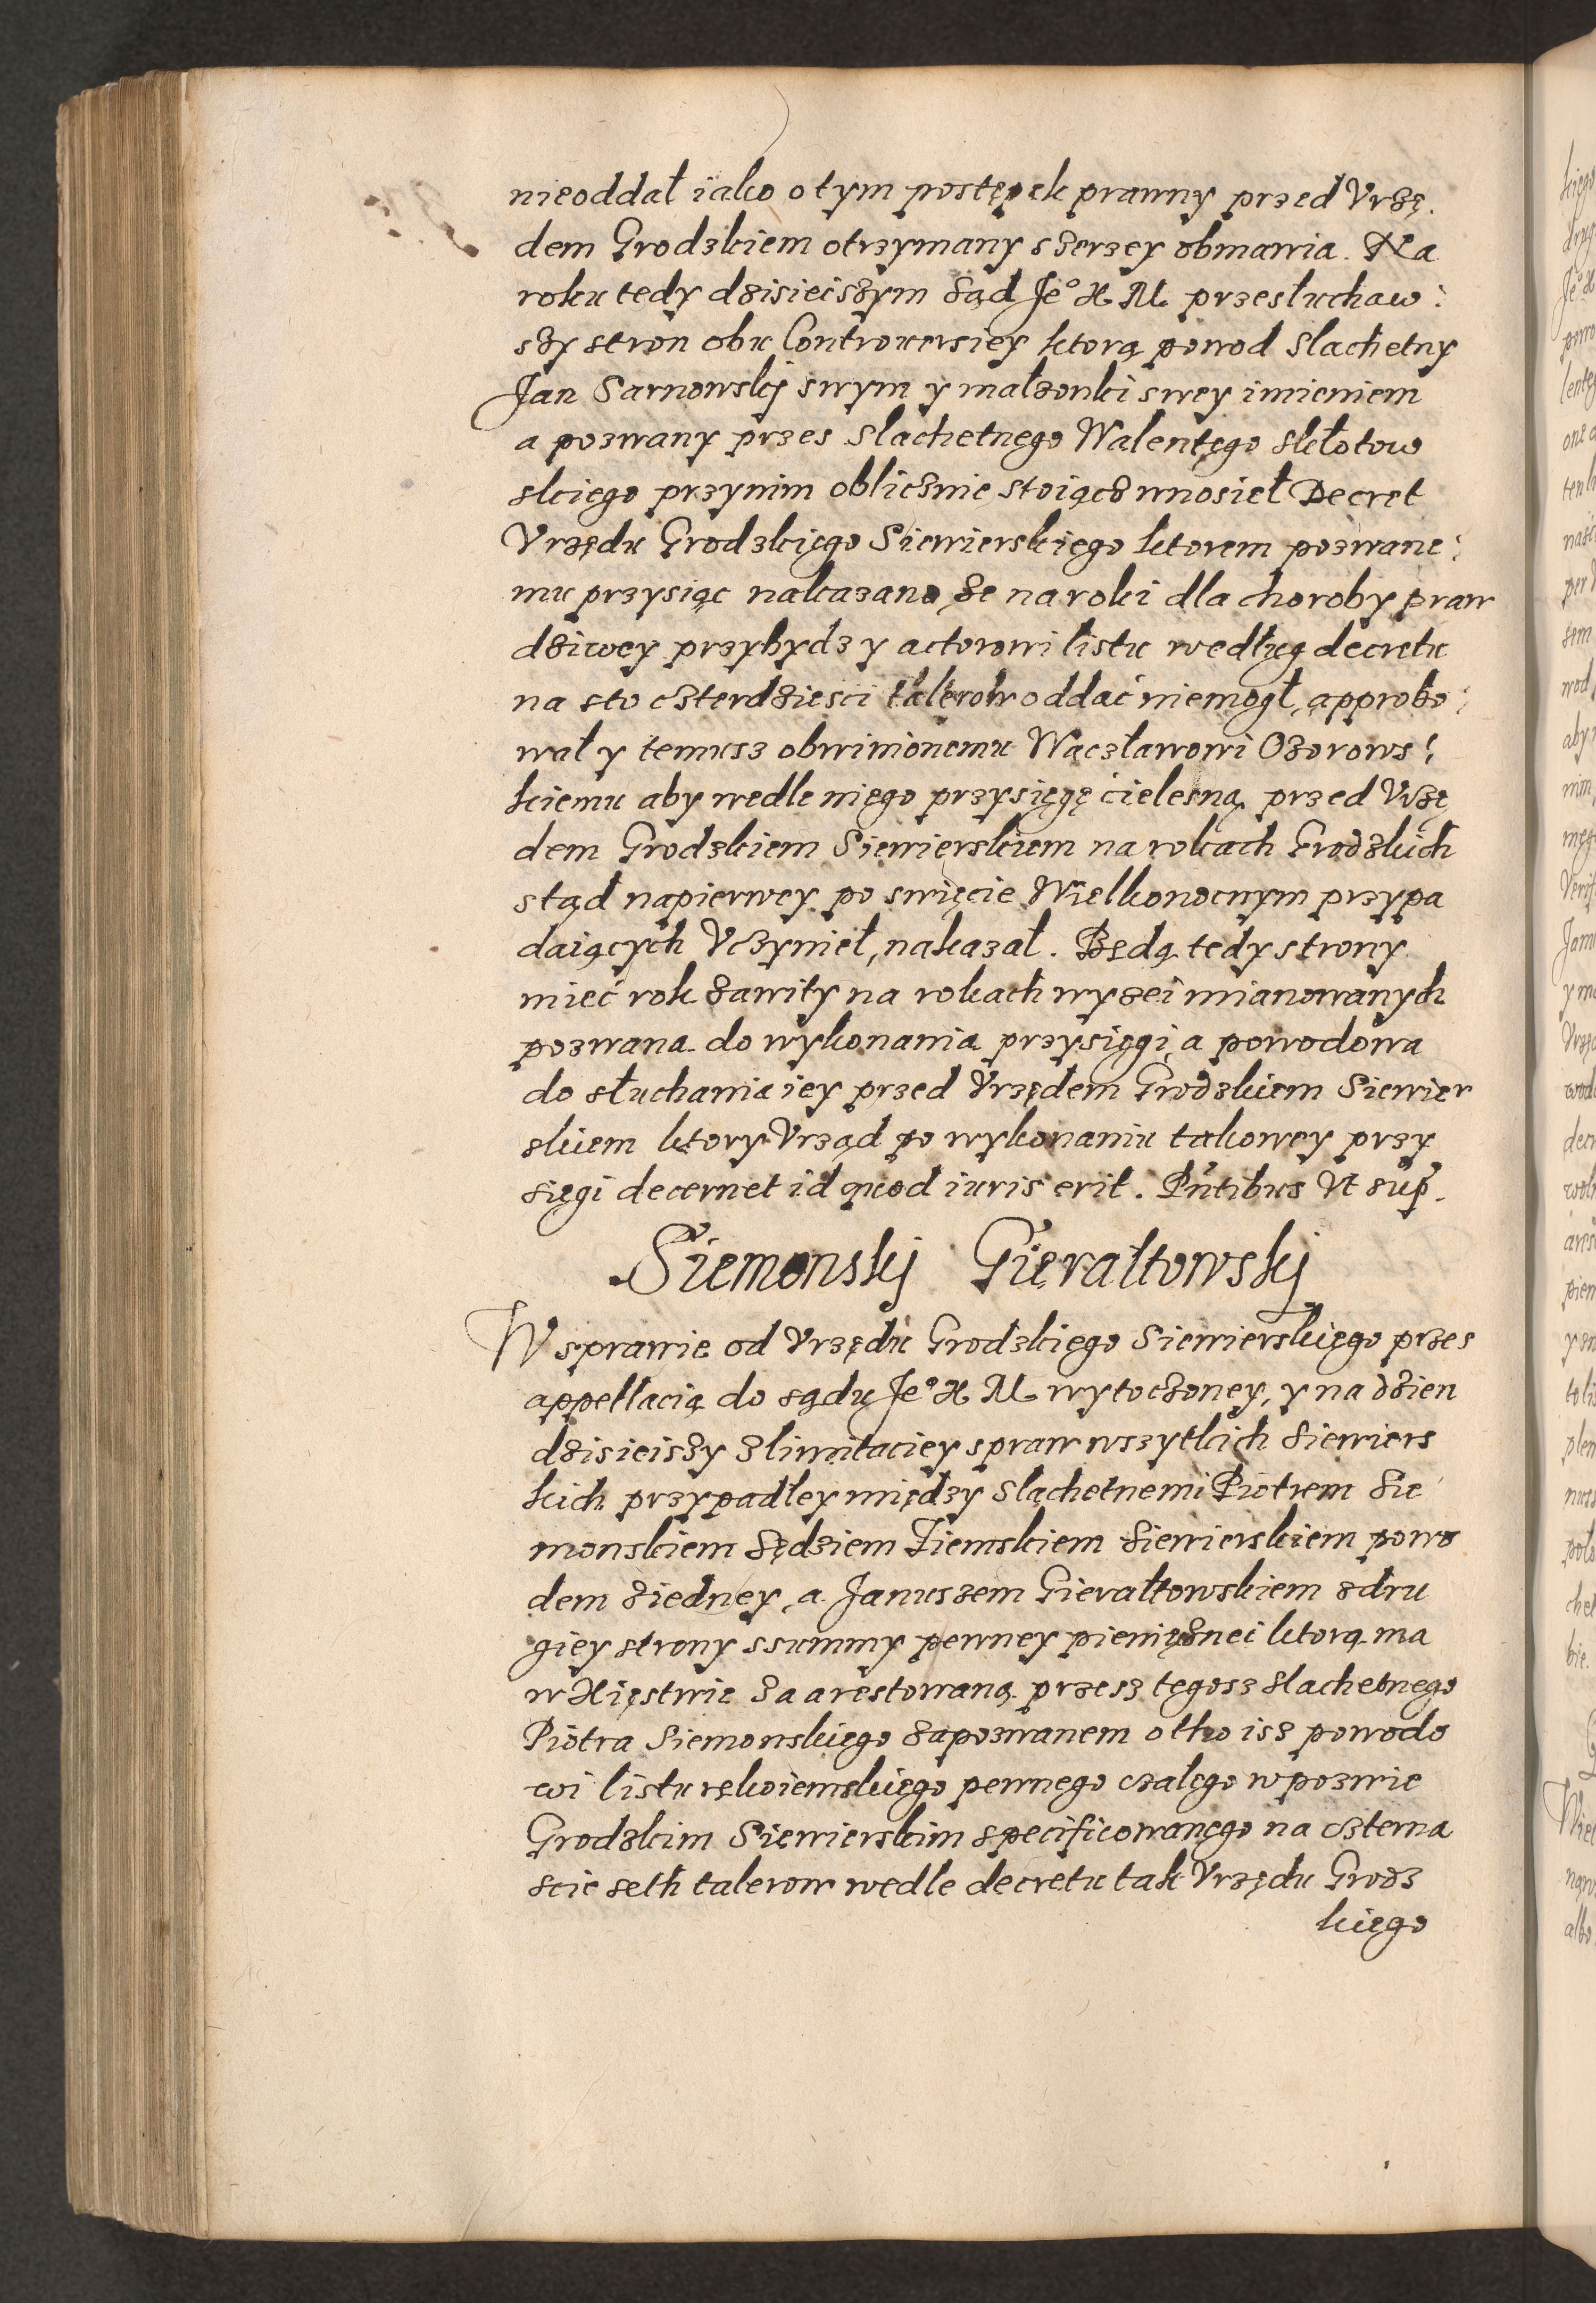 nieoddał iako o tym postępek prawny przed Vrzę.
dem Grodzkiem otrzymany szerzey obmawia. Na
roku tedy dzisieiszym sąd Je° X. M. przesłuchaw:
szy stron obu Controuersiey ktorą powod slachetny
Jan Sarnowskj swym y małzonki swey imieniem
a pozwany przes slachetnego Walentęgo skłotow
skiego przynim oblicznie stoiącz wnosieł Decret
Vrzędu Grodzkięgo Siewierskięgo ktorem pozwane:
mu przysiąc nakazano ze na roki dla choroby praw
dziwey przybydz y actorowi listu według decretu
na sto czterdziesci talerow oddać niemogł, approbo:
wał y temusz obwinionemu Wączławowi Ozorows:
kiemu aby wedle nięgo przysięgę cielesną przed Vrzę
dem Grodzkiem Siewierskiem na rokach Grodzkich
stąd napierwey po swięcie Wielkonocnym przypa
daiących Vczynieł, nakazał. Będą tedy strony
mieć rok zawity na rokach wyzei mianowanych
pozwana do wykonania przysięgi a powodowa
do słuchania iey przed Vrzędem Grodzkiem Siewier
skiem ktory Vrząd po wykonaniu takowey przy
sięgi decernet id quod iuris erit. Pn̄tibus Vt sup̄.
Siemonskj Gierałtowskj
W sprawie od Vrzędu Grodzkięgo Siewierskięgo przes
appellacią do sądu Je° X M wytoczoney, y na dzien
dzisieiszy z limitaciey spraw wszytkich siewiers
kich przypadłey między slachetnemi Piotrem Sie
monskiem sędziem Ziemskiem siewierskiem powo
dem ziedney a Januszem Gierałtowskiem zdru
giey strony ssummy pewney pieniężnei ktorą ma
w Xięstwie za arestowaną przesz tęgosz slachetnego
Piotra Siemonskiego zapozwanem o tho isz powodo
wi listu rękoiemskięgo pewnego czałęgo w pozwie
Grodzkim Siewierskim specificowanęgo na czterna
scie seth talerow wedle decretu tak Vrzędu Grodz
kięgo